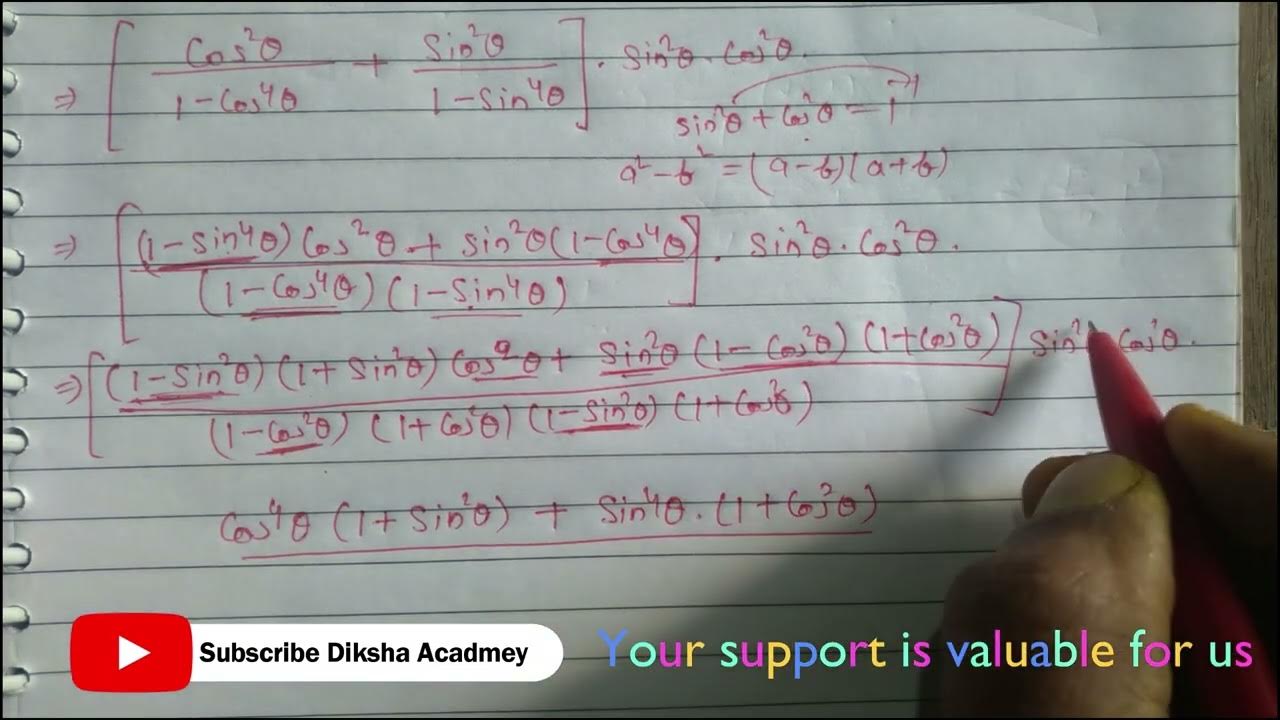 ⇒ [ Cos²θ / 1 - Cos⁴θ + Sin²θ / 1 - Sin⁴θ ] . Sin²θ . Cos²θ.
sin²θ + Cos²θ = 1
a² - b² = (a - b)(a + b)
⇒ [ (1 - Sin⁴θ) Cos²θ + Sin²θ (1 - Cos⁴θ) / (1 - Cos⁴θ) (1 - Sin⁴θ) ] . Sin²θ . Cos²θ.
⇒ [ (1 - Sin²θ) (1 + Sin²θ) Cos²θ + Sin²θ (1 - Cos²θ) (1 + Cos²θ) / (1 - Cos²θ) (1 + Cos²θ) (1 - Sin²θ) (1 + Cos²θ) ] Sin² Cos²θ.
Cos⁴θ (1 + Sin²θ) + Sin⁴θ . (1 + Cos²θ)
Subscribe Diksha Acadmey
Your support is valuable for us